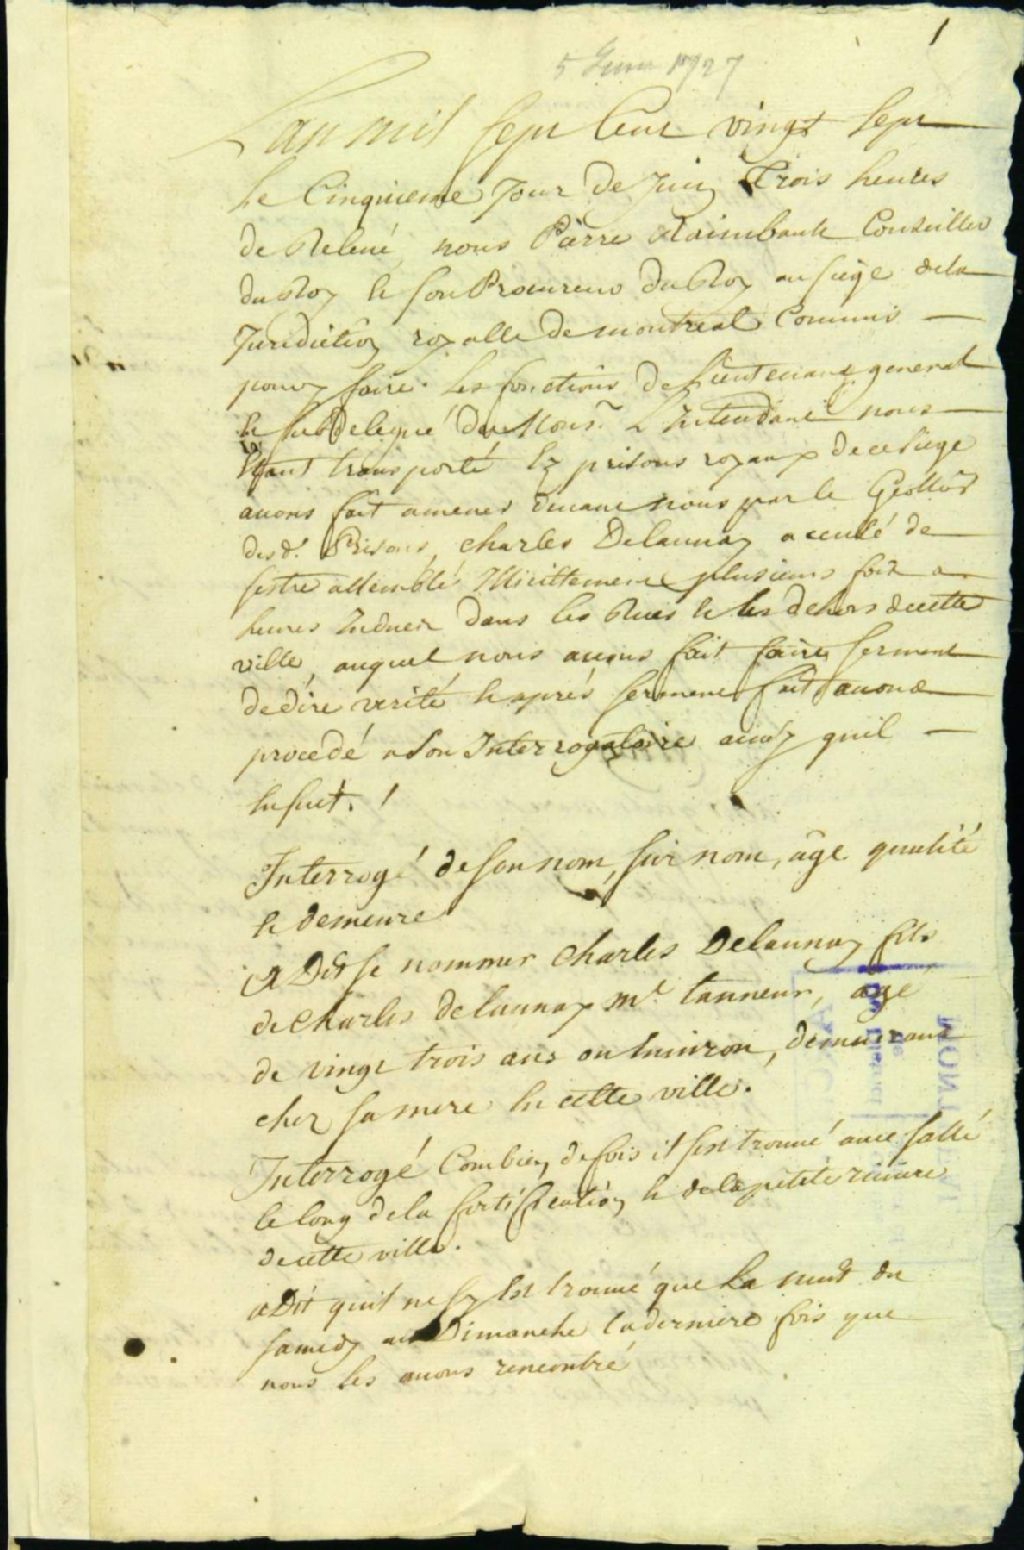 1
5 Juin 1727
Lan mil sept Cent vingt sept
le Cinquieme Jour de Juin Trois heures
de Relevé, nous Pierre Raimbault Conseiller
du Roy et son Procureur du Roy au siege dela
Juridiction royalle de montreal Commis
pour faire les fonctions de Lieutenant general
et subdelegué de Monsr L'Intendant nous
Etant transporté Ez prisons royaux de ce siege
avons fait amener devant nous par le Geollier
desd. Prisons, charles Delaunay accusé de
sestre assemblé Illicittement plusieurs fois a
heures Indues dans les Rues et les dehors de cette
ville, auquel nous avons fait faire serment
de dire verité et aprés serment fait avons
procedé a son Interrogatoire ainsy quil
Ensuit. /
Interrogé de son nom, sur nom, âge qualité
et demeure
A Dit se nommer Charles Delaunay fils
de Charles delaunay me. tanneur, agé
de vingt trois ans ou Environ, demeurant
chez sa mere En cette ville.
Interrogé Combien de fois il sest trouvé avec sallé
le long de la fortification et de la petite riviere
de cette ville.
A Dit quil ne sy Est trouvé que La nuit du
samedy au Dimanche la derniere fois que
nous les avons rencontré